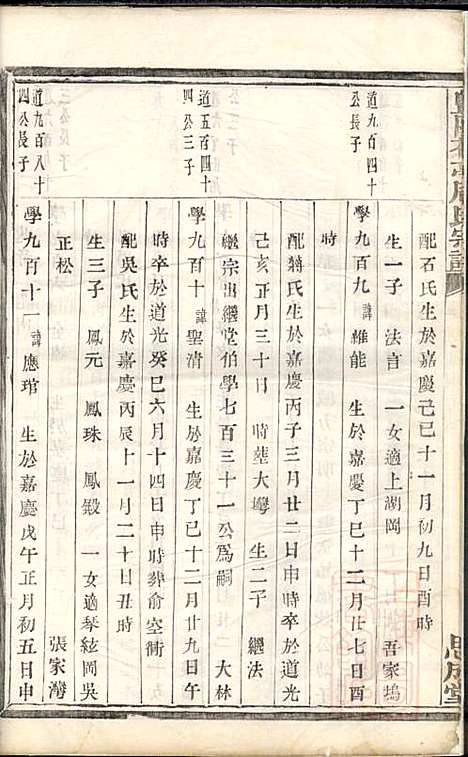 宗譜
思成堂
配石氏生於嘉慶己巳十一月初九日酉時
生一子 法言 一女適上湖岡 吾家塢
道九百四十
公長子
學九百九諱維能 生於嘉慶丁巳十二月廿七日酉
時
配蔣氏生於嘉慶丙子三月廿二日申時卒於道光
己亥正月三十日 時葬大塆 生二子 繼法
繼宗出繼堂伯學七百三十一公爲嗣 大林
道五百四十
四公三子
學九百十諱聖清 生於嘉慶丁巳十二月廿九日午
時卒於道光癸巳六月十四日申時葬俞空衕
配吳氏生於嘉慶丙辰十一月二十日丑時
生三子 鳳元 鳳珠 鳳鍛 一女適琴絃岡吳
正松 張家灣
道九百八十
四公長子
學九百十一諱應琯 生於嘉慶戊午正月初五日申